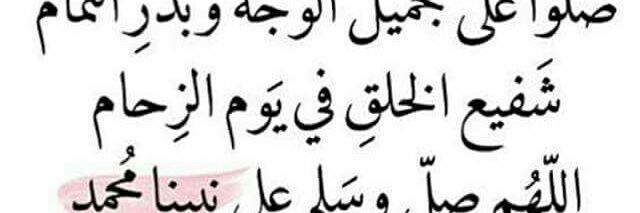 صلوا على جميل الوجه وبدرِ التمام
شَفيع الخلقِ في يَوم الزِحام
اللّهُم صلّ وسَلم على نبينا مُحمد